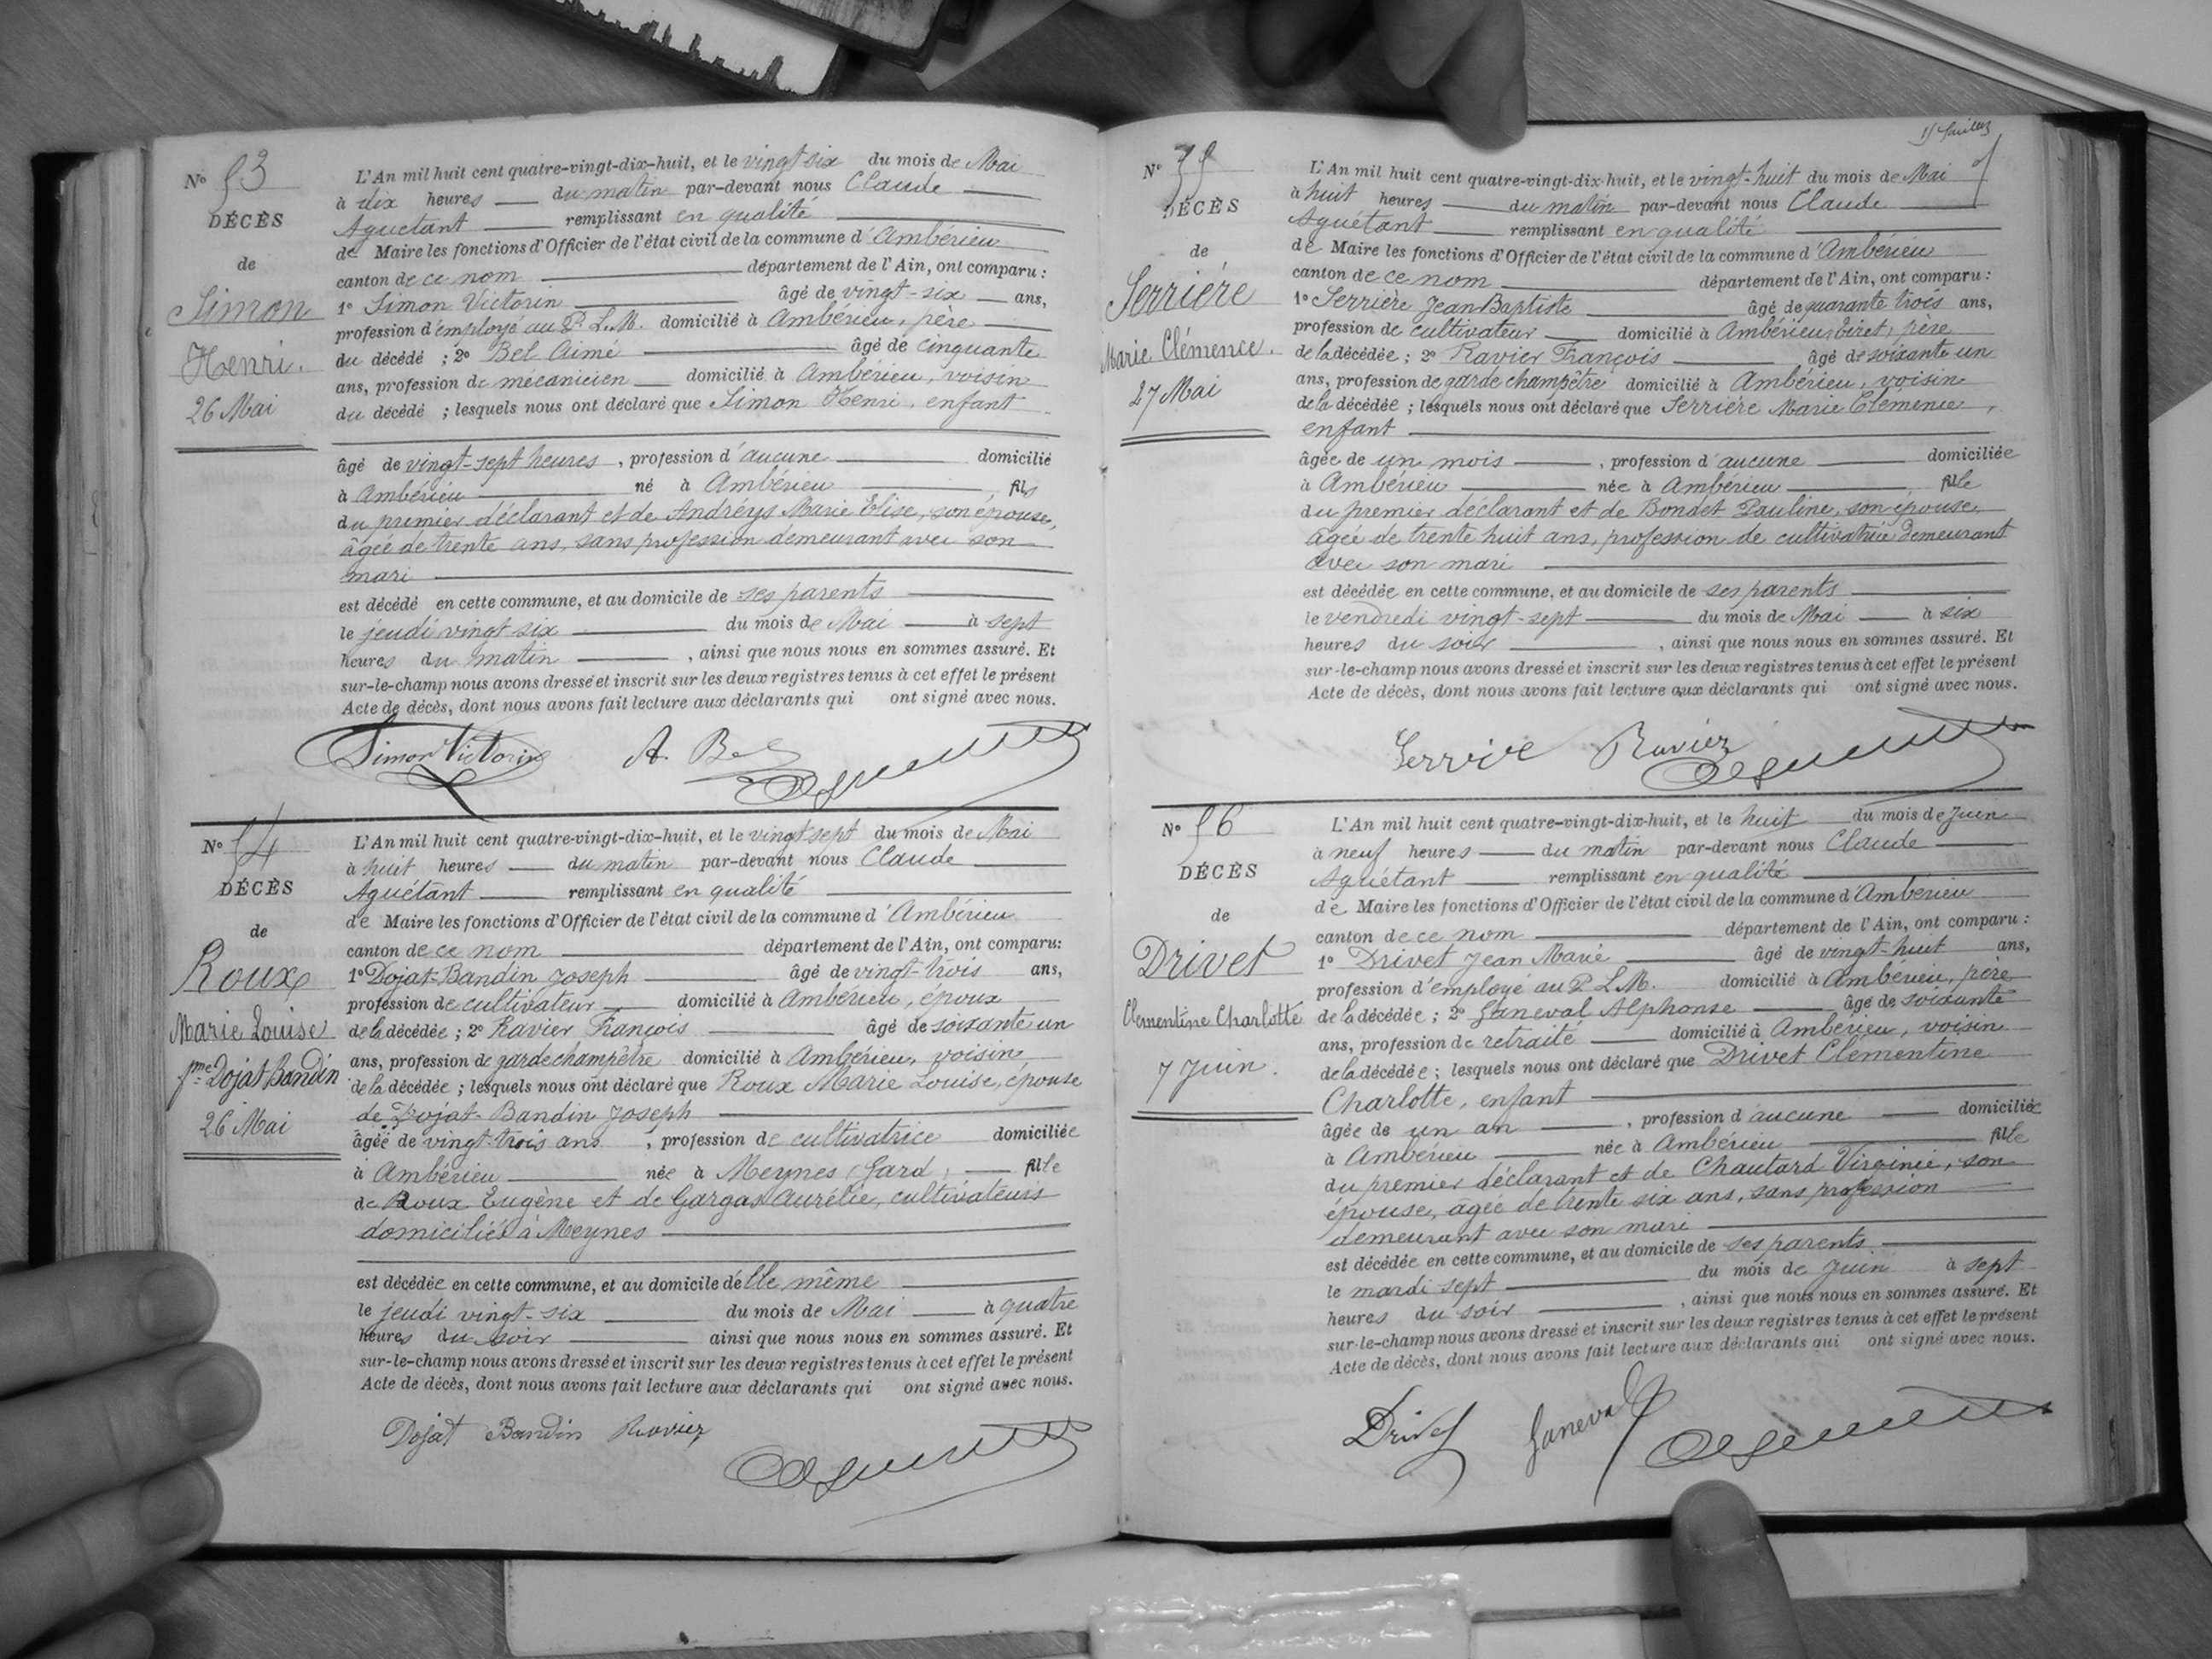 Nº 53
DÉCÈS
de
Simon
Henri.
26 Mai
L'An mil huit cent quatre-vingt-dix-huit, et le vingt six du mois de Mai
à dix heures du matin par-devant nous Claude
Aguétant remplissant en qualité
de Maire les fonctions d'Officier de l'état civil de la commune d'Ambérieu
canton de ce nom département de l'Ain, ont comparu :
1º Simon Victorin âgé de vingt-six ans,
profession d'employé au P. L. M. domicilié à Ambérieu, père
du décédé ; 2º Bel Aimé âgé de cinquante
ans, profession de mécanicien domicilié à Ambérieu, voisin
du décédé ; lesquels nous ont déclaré que Simon Henri, enfant
âgé de vingt-sept heures, profession d'aucune domicilié
à Ambérieu né à Ambérieu fils
du premier déclarant et de Andréys Marie Elise, son épouse,
âgée de trente ans, sans profession demeurant avec son
mari
est décédé en cette commune, et au domicile de ses parents
le jeudi vingt six du mois de Mai à sept
heures du matin, ainsi que nous nous en sommes assuré. Et
sur-le-champ nous avons dressé et inscrit sur les deux registres tenus à cet effet le présent
Acte de décès, dont nous avons fait lecture aux déclarants qui ont signé avec nous.
Simon Victorin A. Bel
Nº 54
DÉCÈS
de
Roux
Marie Louise
fme Dojat Bandin
26 Mai
L'An mil huit cent quatre-vingt-dix-huit, et le vingt sept du mois de Mai
à huit heures du matin par-devant nous Claude
Aguétant remplissant en qualité
de Maire les fonctions d'Officier de l'état civil de la commune d'Ambérieu
canton de ce nom département de l'Ain, ont comparu:
1º Dojat-Bandin Joseph âgé de vingt-trois ans,
profession de cultivateur domicilié à Ambérieu, époux
de la décédée ; 2º Ravier François âgé de soixante un
ans, profession de garde champêtre domicilié à Ambérieu, voisin
de la décédée ; lesquels nous ont déclaré que Roux Marie Louise, épouse
de Dojat-Bandin Joseph
âgée de vingt-trois ans, profession de cultivatrice domiciliée
à Ambérieu née à Meynes (Gard) fille
de Roux Eugène et de Gargas Aurélie, cultivateurs
domiciliés à Meynes
est décédée en cette commune, et au domicile d'elle même
le jeudi vingt-six du mois de Mai à quatre
heures du soir ainsi que nous nous en sommes assuré. Et
sur-le-champ nous avons dressé et inscrit sur les deux registres tenus à cet effet le présent
Acte de décès, dont nous avons fait lecture aux déclarants qui ont signé avec nous.
Dojat Bandin Ravier
15 Juillet
Nº 55
DÉCÈS
de
Serrière
Marie Clémence.
27 Mai
L'An mil huit cent quatre-vingt-dix-huit, et le vingt-huit du mois de Mai
à huit heures du matin par-devant nous Claude
Aguétant remplissant en qualité
de Maire les fonctions d'Officier de l'état civil de la commune d'Ambérieu
canton de ce nom département de l'Ain, ont comparu :
1º Serrière Jean Baptiste âgé de quarante trois ans,
profession de cultivateur domicilié à Ambérieu, Tiret, père
de la décédée ; 2º Ravier François âgé de soixante un
ans, profession de garde champêtre domicilié à Ambérieu, voisin
de la décédée ; lesquels nous ont déclaré que Serrière Marie Clémence,
enfant
âgée de un mois, profession d'aucune domiciliée
à Ambérieu née à Ambérieu fille
du premier déclarant et de Bondet Pauline, son épouse,
âgée de trente huit ans, profession de cultivatrice demeurant
avec son mari
est décédée en cette commune, et au domicile de ses parents
le vendredi vingt-sept du mois de Mai à six
heures du soir, ainsi que nous nous en sommes assuré. Et
sur-le-champ nous avons dressé et inscrit sur les deux registres tenus à cet effet le présent
Acte de décès, dont nous avons fait lecture aux déclarants qui ont signé avec nous.
Serrière Ravier
Nº 56
DÉCÈS
de
Drivet
Clementine Charlotte
7 Juin.
L'An mil huit cent quatre-vingt-dix-huit, et le huit du mois de Juin
à neuf heures du matin par-devant nous Claude
Aguétant remplissant en qualité
de Maire les fonctions d'Officier de l'état civil de la commune d'Ambérieu
canton de ce nom département de l'Ain, ont comparu :
1º Drivet Jean Marie âgé de vingt-huit ans,
profession d'employé au P. L. M. domicilié à Ambérieu, père
de la décédée ; 2º Ganeval Alphonse âgé de soixante
ans, profession de retraité domicilié à Ambérieu, voisin
de la décédée ; lesquels nous ont déclaré que Drivet Clementine
Charlotte, enfant
âgée de un an, profession d'aucune domiciliée
à Ambérieu née à Ambérieu fille
du premier déclarant et de Chautard Virginie, son
épouse, âgée de trente six ans, sans profession
demeurant avec son mari
est décédée en cette commune, et au domicile de ses parents
le mardi sept du mois de Juin à sept
heures du soir, ainsi que nous nous en sommes assuré. Et
sur-le-champ nous avons dressé et inscrit sur les deux registres tenus à cet effet le présent
Acte de décès, dont nous avons fait lecture aux déclarants qui ont signé avec nous.
Drivet Ganeval